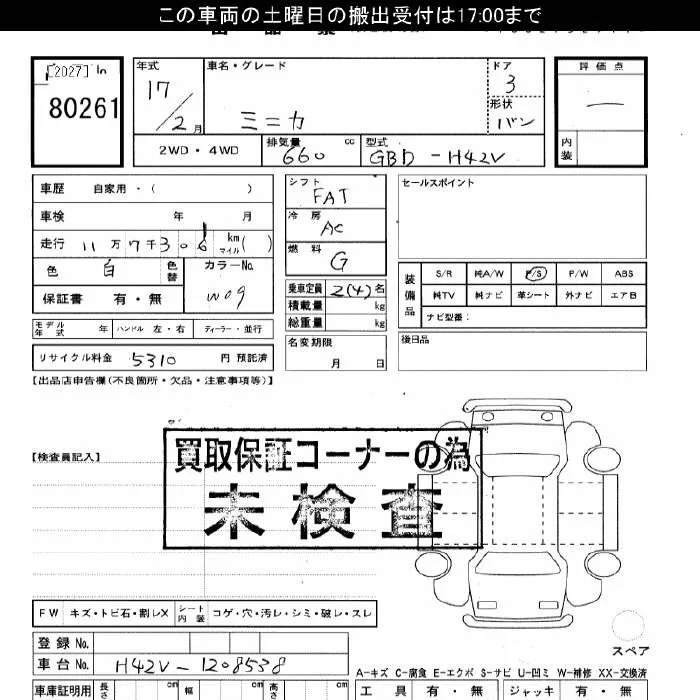 この車両の土曜日の搬出受付は17:00まで
[2027] In
80261
年式
17/2月
車名・グレード
ミニカ
ドア
3
形状
バン
評価点
―
内装
2WD・4WD
排気量 660 cc
型式 GBD-H42V
車歴 自家用・( )
車検 年 月
走行 11万7千306 km マイル( )
色 白 色替
カラーNo.
W09
保証書 有・無
モデル年式 年 ハンドル 左・右 ディーラー・並行
リサイクル料金 5310 円 預託済
シフト
FAT
冷房
AC
燃料
G
乗車定員 2(4)名
積載量 kg
総重量 kg
名変期限
月 日
セールスポイント
装備品
S/R 純A/W P/S P/W ABS
純TV 純ナビ 革シート 外ナビ エアB
ナビ型番:
後日品
【出品店申告欄(不良箇所・欠品・注意事項等)】
【検査員記入】
買取保証コーナーの為
未検査
FW キズ・トビ石・割レX シート内装 コゲ・穴・汚レ・シミ・破レ・スレ
スペア
登録No.
車台No. H42V-1208538
A-キズ C-腐食 E-エクボ S-サビ U-凹ミ W-補修 XX-交換済
車庫証明用 長さ cm 幅 cm 高さ cm
工具 有・無 ジャッキ 有・無